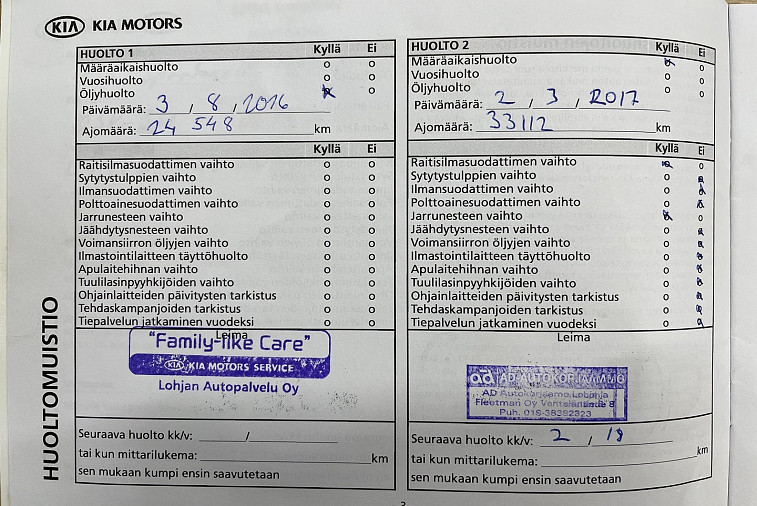 KIA KIA MOTORS
HUOLTO 1 Kyllä Ei
Määräaikaishuolto o o
Vuosihuolto o o
Öljyhuolto x o
Päivämäärä: 3 / 8 / 2016
Ajomäärä: 24 548 km
Kyllä Ei
Raitisilmasuodattimen vaihto o o
Sytytystulppien vaihto o o
Ilmansuodattimen vaihto o o
Polttoainesuodattimen vaihto o o
Jarrunesteen vaihto o o
Jäähdytysnesteen vaihto o o
Voimansiirron öljyjen vaihto o o
Ilmastointilaitteen täyttöhuolto o o
Apulaitehihnan vaihto o o
Tuulilasinpyyhkijöiden vaihto o o
Ohjainlaitteiden päivitysten tarkistus o o
Tehdaskampanjoiden tarkistus o o
Tiepalvelun jatkaminen vuodeksi o o
Leima
"Family-like Care"
KIA KIA MOTORS SERVICE
Lohjan Autopalvelu Oy
Seuraava huolto kk/v: /
tai kun mittarilukema: km
sen mukaan kumpi ensin saavutetaan
HUOLTO 2 Kyllä Ei
Määräaikaishuolto x o
Vuosihuolto o o
Öljyhuolto o o
Päivämäärä: 2 / 3 / 2017
Ajomäärä: 33112 km
Kyllä Ei
Raitisilmasuodattimen vaihto x o
Sytytystulppien vaihto o x
Ilmansuodattimen vaihto o x
Polttoainesuodattimen vaihto o x
Jarrunesteen vaihto x o
Jäähdytysnesteen vaihto o x
Voimansiirron öljyjen vaihto o x
Ilmastointilaitteen täyttöhuolto o x
Apulaitehihnan vaihto o x
Tuulilasinpyyhkijöiden vaihto o x
Ohjainlaitteiden päivitysten tarkistus o x
Tehdaskampanjoiden tarkistus o x
Tiepalvelun jatkaminen vuodeksi o x
Leima
ad AD AUTOKORJAAMO
AD Autokorjaamo Lohinja
Fleetman Oy
Puh. 019-38382323
Seuraava huolto kk/v: 2 / 18
tai kun mittarilukema: km
sen mukaan kumpi ensin saavutetaan
HUOLTOMUISTIO